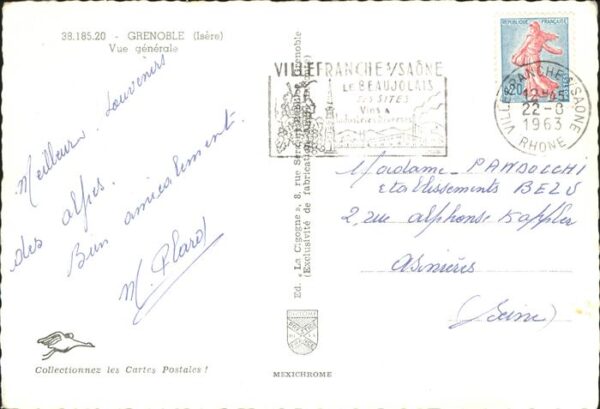 38.185.20 - GRENOBLE (Isère)
Vue générale
Meilleurs souvenirs
des alpes.
Bien amicalement.
M. Plard
Collectionnez les Cartes Postales !
Ed. "La Cigogne", 8, rue
(Exclusivité de fabrication
MEXICHROME
VILLEFRANCHE S/SAÔNE
LE BEAUJOLAIS
SES SITES
REPUBLIQUE FRANÇAISE
0,20
VILLEFRANCHE S/SAÔNE
12-45
22-8
1963
RHONE
Madame PANDOLCHI
etablissements BEZU
2, rue alphonse Kappler
asnières
(Seine)